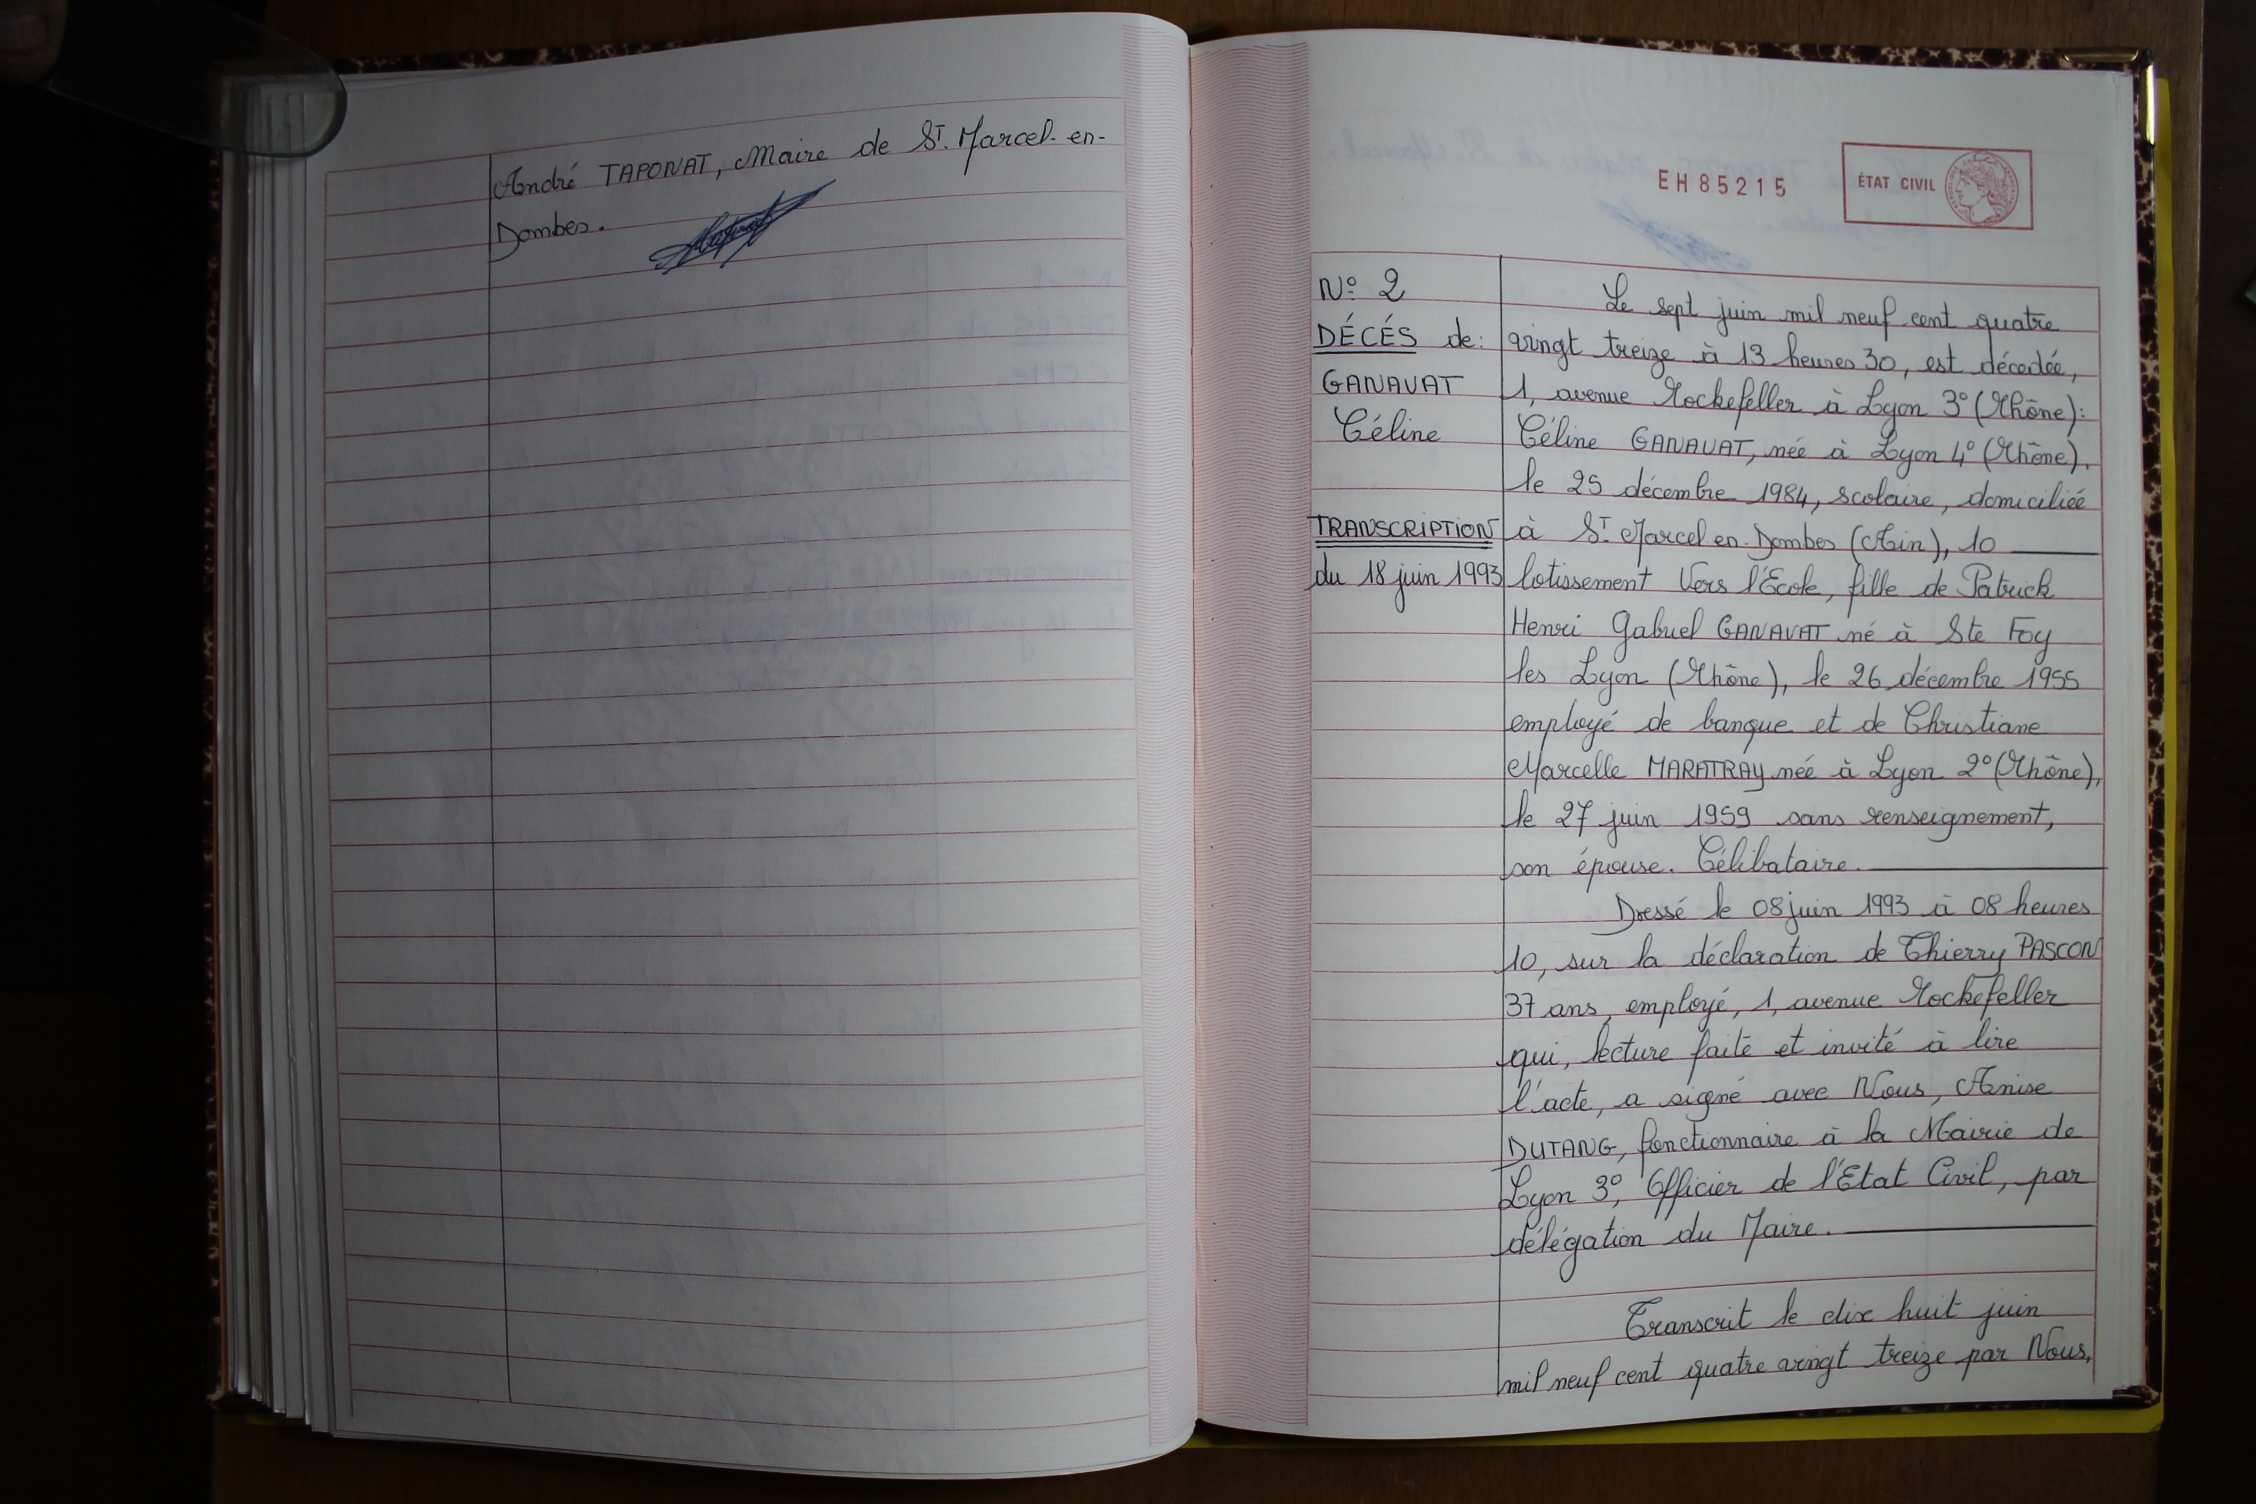 André TAPONAT, Maire de St. Marcel-en-
Dombes.
EH85215
ÉTAT CIVIL
N° 2
DÉCÉS de:
GANAVAT
Céline
TRANSCRIPTION
du 18 juin 1993
Le sept juin mil neuf cent quatre
vingt treize à 13 heures 30, est décédée,
1, avenue Rockefeller à Lyon 3° (Rhône):
Céline GANAVAT, née à Lyon 4° (Rhône),
le 25 décembre 1984, scolaire, domiciliée
à St Marcel en Dombes (Ain), 10
lotissement Vers l'Ecole, fille de Patrick
Henri Gabriel GANAVAT né à Ste Foy
les Lyon (Rhône), le 26 décembre 1955
employé de banque et de Christiane
Marcelle MARATRAY née à Lyon 2° (Rhône),
le 27 juin 1959 sans renseignement,
son épouse. Célibataire.
Dressé le 08 juin 1993 à 08 heures
10, sur la déclaration de Thierry PASCON
37 ans, employé, 1, avenue Rockefeller
qui, lecture faite et invité à lire
l'acte, a signé avec Nous, Anise
DUTANG, fonctionnaire à la Mairie de
Lyon 3°, Officier de l'Etat Civil, par
délégation du Maire.
Transcrit le dix huit juin
mil neuf cent quatre vingt treize par Nous,